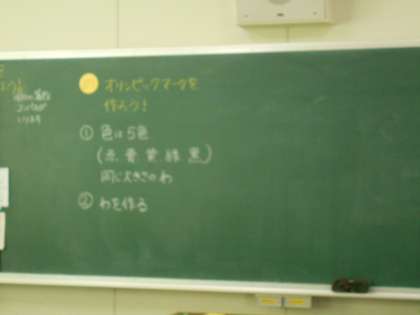 オリンピックマークを
作ろう!
① 色は5色
(赤 青 黄 緑 黒)
同じ大きさのわ
② わを作る